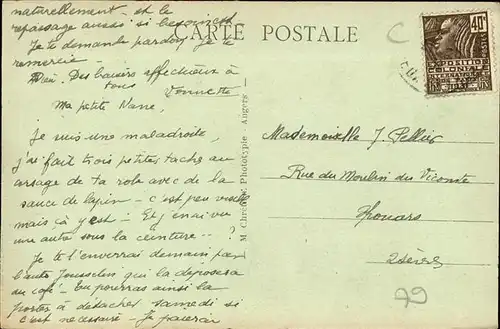 naturellement et le
repassage aussi si besoin est
Je te demande pardon, je te
remercie
Des baisers affectueux à
tous Vonnette
Ma petite Nane,
Je suis une maladroite,
j'ai fait trois petites taches au
corsage de ta robe avec de la
sauce de lapin - c'est peu visible
mais ça y est - Et j'en ai vu
une autre sous la ceinture -- ?
Je te l'enverrai demain par
l'auto Jousselin qui la déposera
au café - tu pourras ainsi la
porter à détacher samedi si
c'est nécessaire - Je paierai
CARTE POSTALE
M. Chrétien, Phototypie Angers
40c
EXPOSITION
COLONIALE
INTERNATIONALE
PARIS 1931
C
Mademoiselle J. Pellier
Rue du Moulin du Vicomte
Thouars
2 Sèvres
79